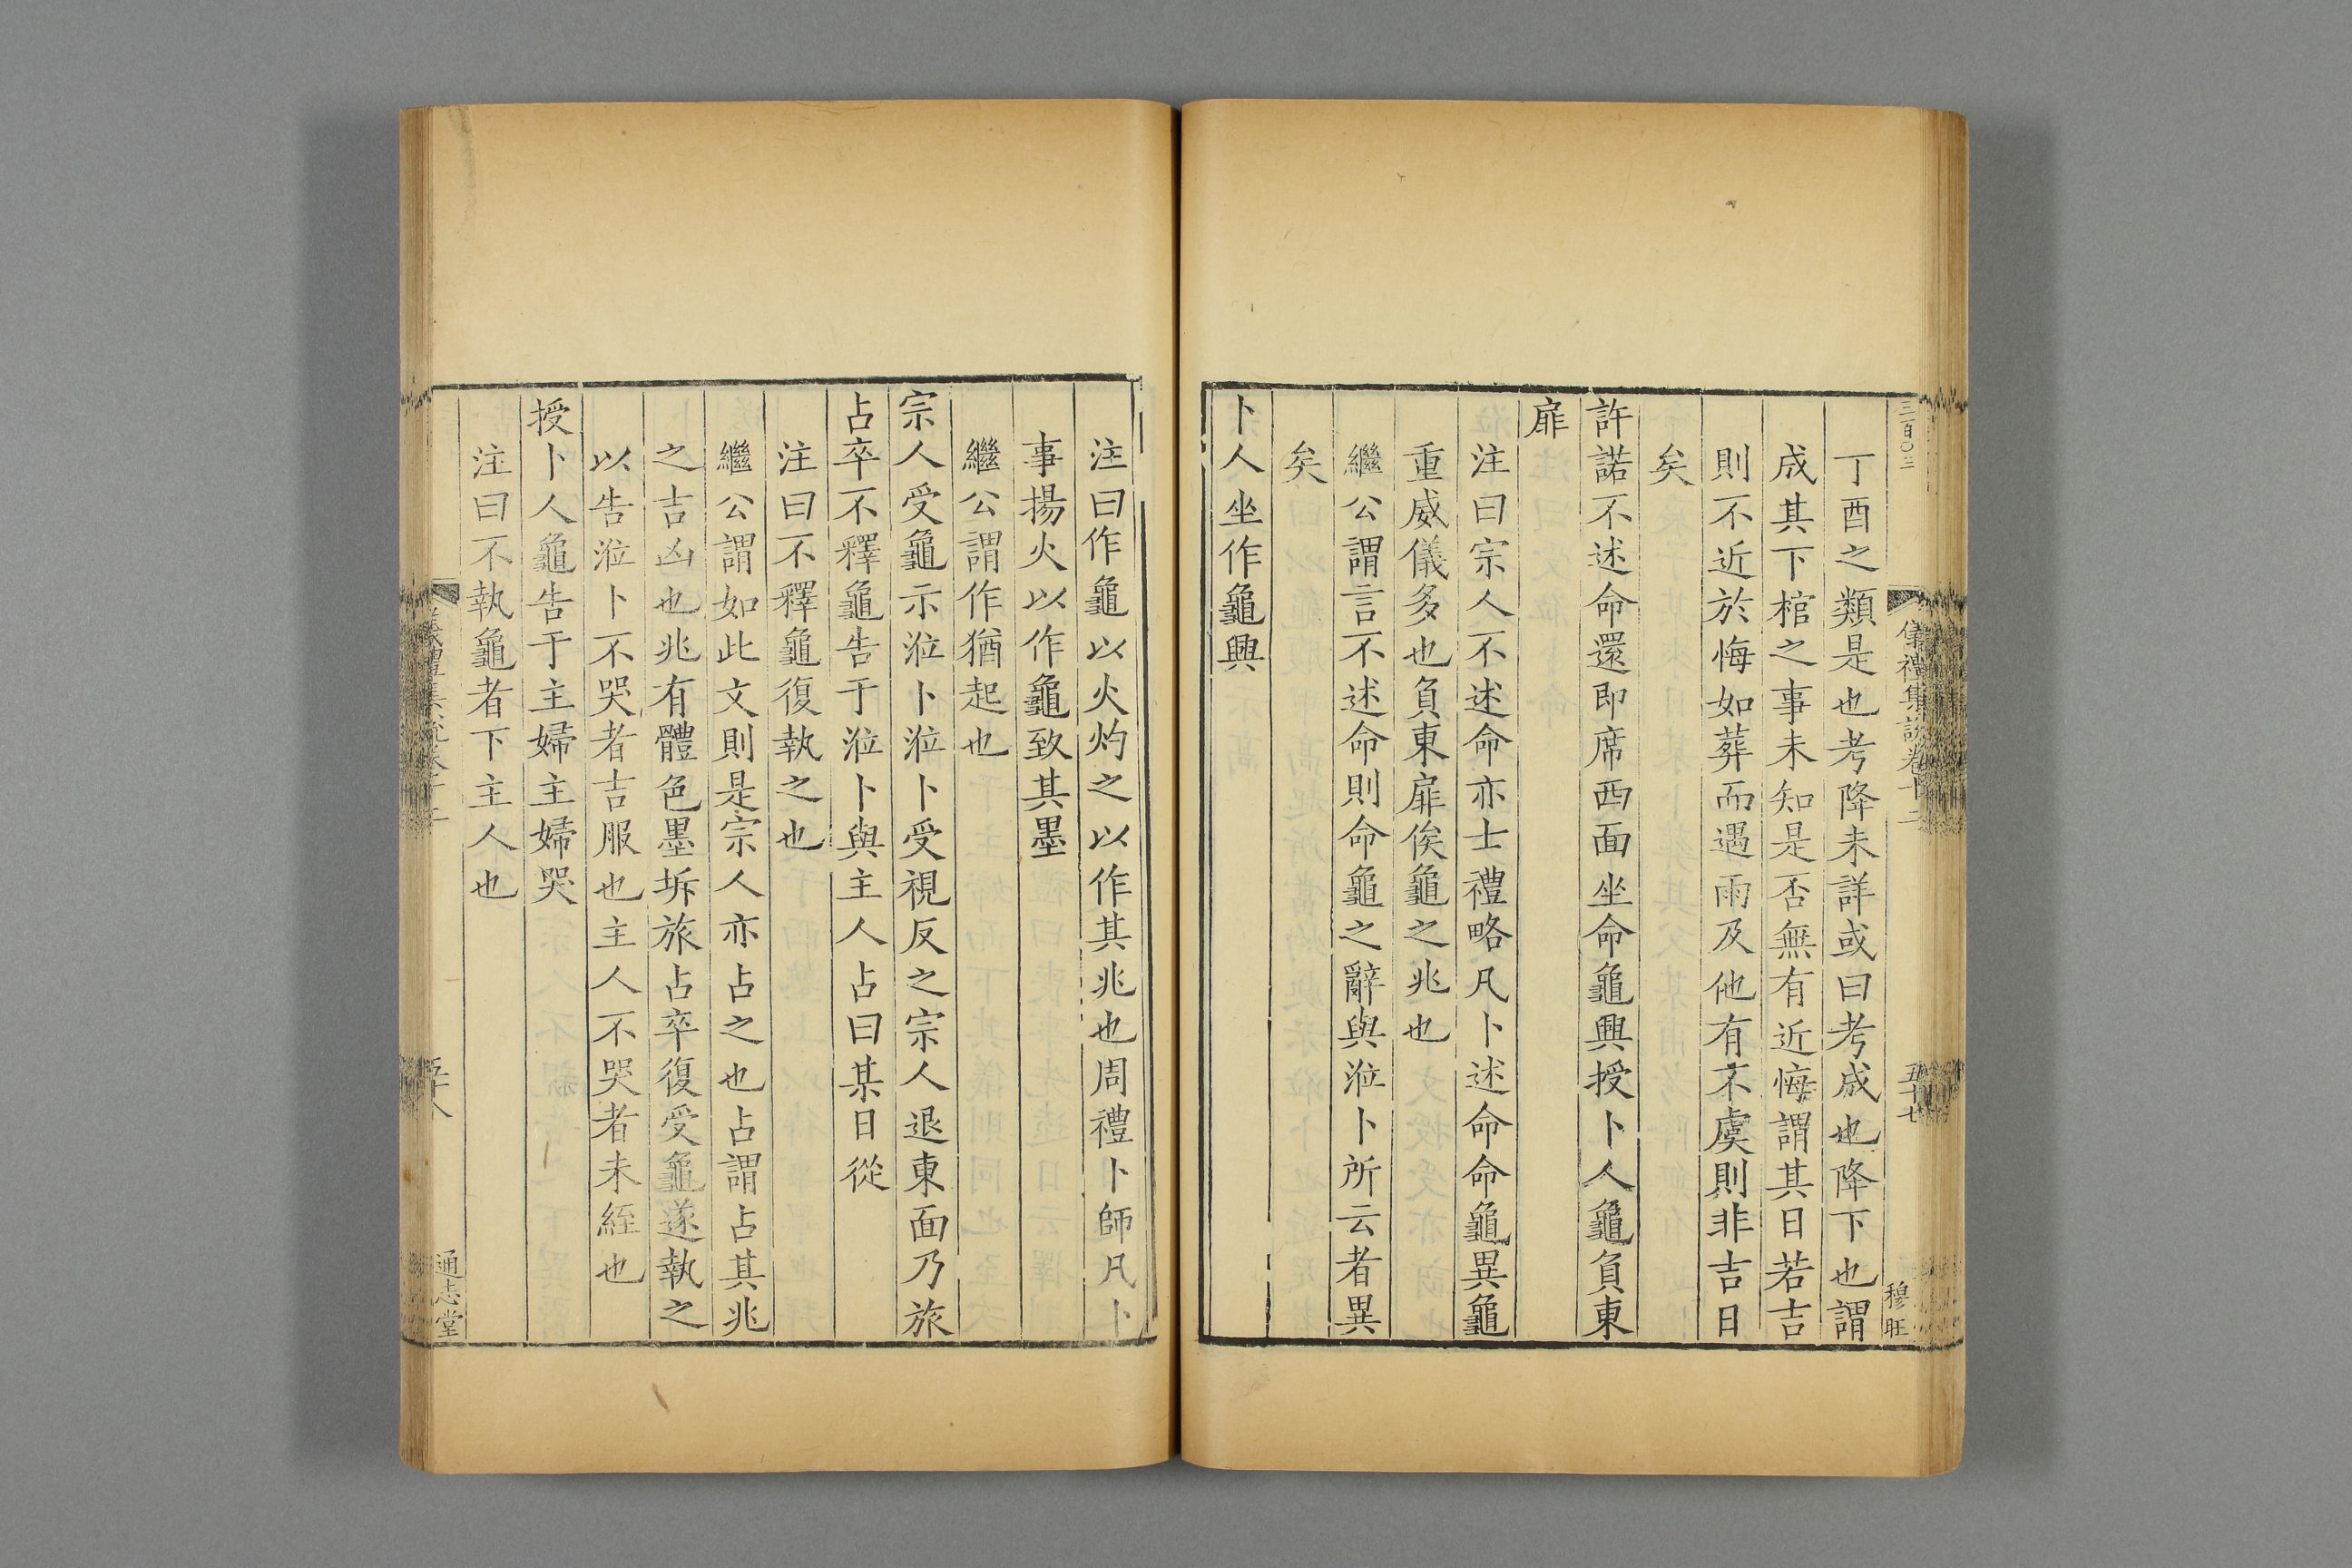 三百〇三
儀禮集說卷十二
五十七
穆旺
丁酉之類是也考降未詳或曰考成也降下也謂
成其下棺之事未知是否無有近悔謂其日若吉
則不近於悔如葬而遇雨及他有不虞則非吉日
矣
許諾不述命還即席西面坐命龜興授卜人龜負東
扉
注曰宗人不述命亦士禮略凡卜述命命龜異龜
重威儀多也負東扉俟龜之兆也
繼公謂言不述命則命龜之辭與涖卜所云者異
矣
卜人坐作龜興
注曰作龜以火灼之以作其兆也周禮卜師凡卜
事揚火以作龜致其墨
繼公謂作猶起也
宗人受龜示涖卜涖卜受視反之宗人退東面乃旅
占卒不釋龜告于涖卜與主人占曰某日從
注曰不釋龜復執之也
繼公謂如此文則是宗人亦占之也占謂占其兆
之吉凶也兆有體色墨坼旅占卒復受龜遂執之
以告涖卜不哭者吉服也主人不哭者未絰也
授卜人龜告于主婦主婦哭
注曰不執龜者下主人也
儀禮集說卷十二
五十八
通志堂